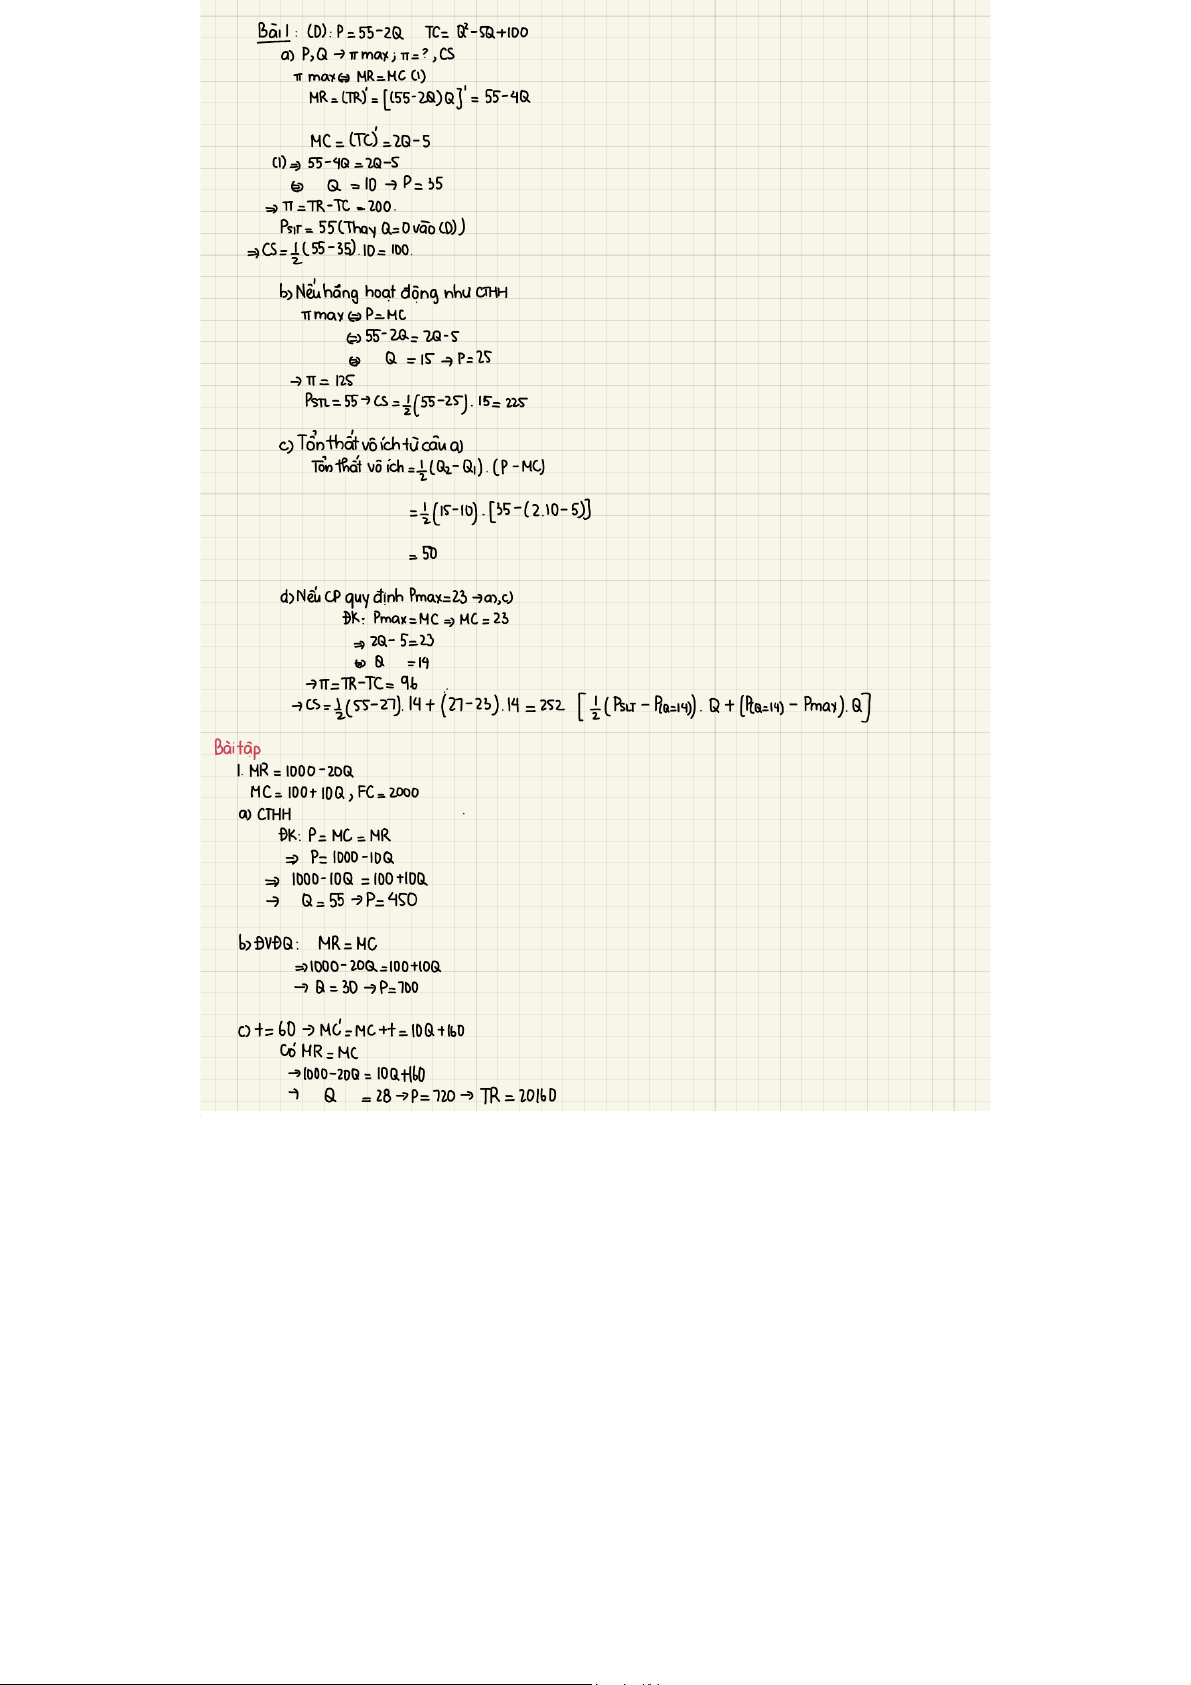 Bài 1: (D): P = 55-2Q TC = Q²-5Q+100
a) P, Q → π max; π = ?, CS
π max ⇔ MR = MC (1)
MR = (TR)' = [(55-2Q)Q]' = 55-4Q
MC = (TC)' = 2Q-5
(1) ⇒ 55-4Q = 2Q-5
⇔ Q = 10 → P = 35
⇒ π = TR-TC = 200.
PSLT = 55 (Thay Q=0 vào (D))
⇒ CS = 1/2 (55-35).10 = 100.
b) Nếu hãng hoạt động như CTHH
π max ⇔ P = MC
⇔ 55-2Q = 2Q-5
⇔ Q = 15 → P = 25
→ π = 125
PSTL = 55 → CS = 1/2 (55-25). 15 = 225
c) Tổn thất vô ích từ câu a)
Tổn thất vô ích = 1/2 (Q2-Q1). (P-MC)
= 1/2 (15-10). [35-(2.10-5)]
= 50
d) Nếu CP quy định Pmax=23 → a), c)
ĐK: Pmax = MC ⇒ MC = 23
⇒ 2Q-5 = 23
⇔ Q = 14
→ π = TR-TC = 96
→ CS = 1/2 (55-27). 14 + (27-23). 14 = 252 [1/2 (PSLT - P(Q=14)). Q + (P(Q=14) - Pmax). Q]
Bài tập
1. MR = 1000-20Q
MC = 100+10Q, FC = 2000
a) CTHH
ĐK: P = MC = MR
⇒ P = 1000-10Q
⇒ 1000-10Q = 100+10Q
→ Q = 55 → P = 450
b) ĐVĐQ: MR = MC
⇒ 1000-20Q = 100+10Q
→ Q = 30 → P = 700
c) t = 60 → MC' = MC+t = 10Q+160
Có MR = MC
→ 1000-20Q = 10Q+160
→ Q = 28 → P = 720 → TR = 20160